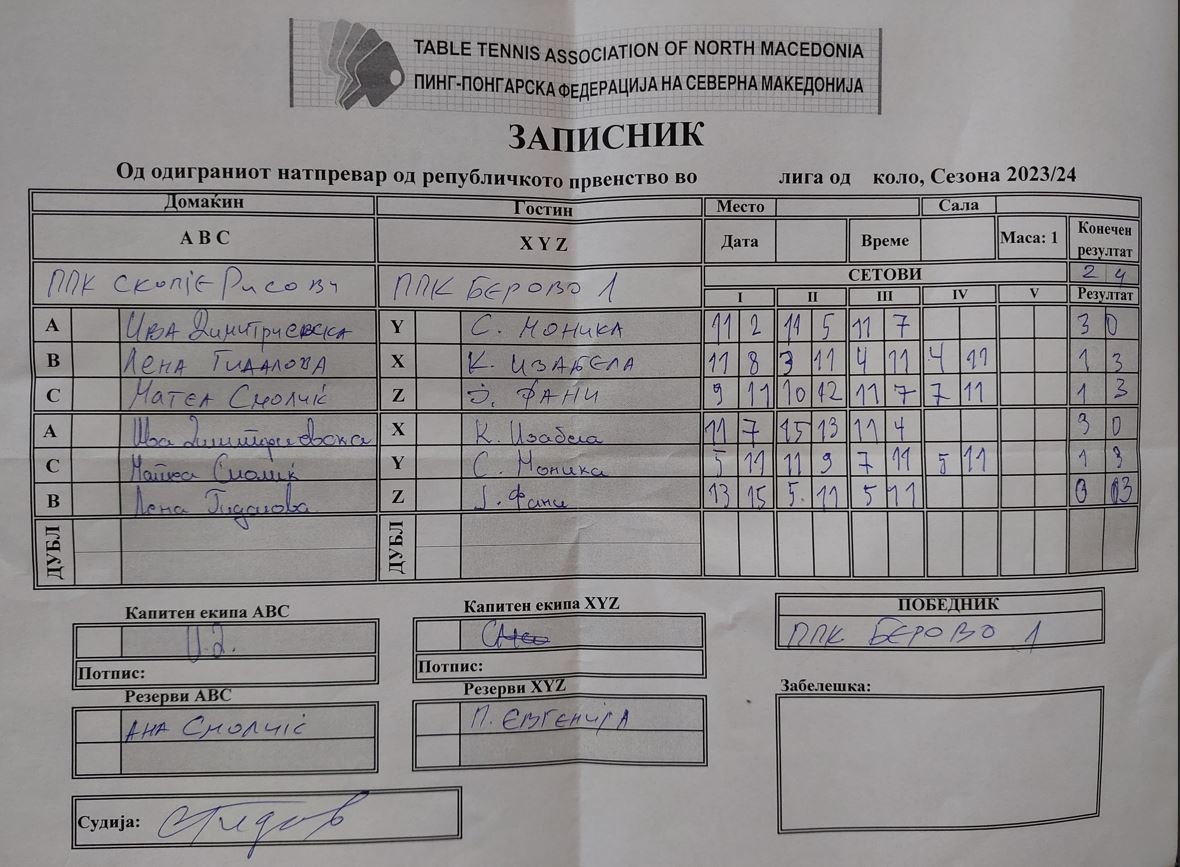 TABLE TENNIS ASSOCIATION OF NORTH MACEDONIA
ПИНГ-ПОНГАРСКА ФЕДЕРАЦИЈА НА СЕВЕРНА МАКЕДОНИЈА
ЗАПИСНИК
Од одиграниот натпревар од републичкото првенство во лига од коло, Сезона 2023/24
Домаќин Гостин Место Сала
A B C X Y Z Дата Време Маса: 1 Конечен резултат
ППК СКОПЈЕ Рисови ППК БЕРОВО 1 СЕТОВИ 2 4
I II III IV V Резултат
A ИВА ДИМИТРИЕВСКА Y С. МОНИКА 11 2 11 5 11 7 3 0
B ЛЕНА ГИДАЛОВА X К. ИЗАБЕЛА 11 8 3 11 4 11 4 11 1 3
C МАТЕА СМОЛЧИЌ Z Ј. ФАНИ 9 11 10 12 11 7 7 11 1 3
A Ива Димитриевска X К. Изабела 11 7 15 13 11 4 3 0
C Y С. Моника 5 11 11 9 7 11 5 11 1 3
B Лена Гидалова Z Ј. Фани 13 15 5 11 5 11 0 3
ДУБЛ ДУБЛ
Капитен екипа ABC Капитен екипа XYZ ПОБЕДНИК
ППК БЕРОВО 1
Потпис: Потпис:
Резерви ABC Резерви XYZ Забелешка:
АНА СМОЛЧИЌ П. ЕВГЕНИЈА
Судија: